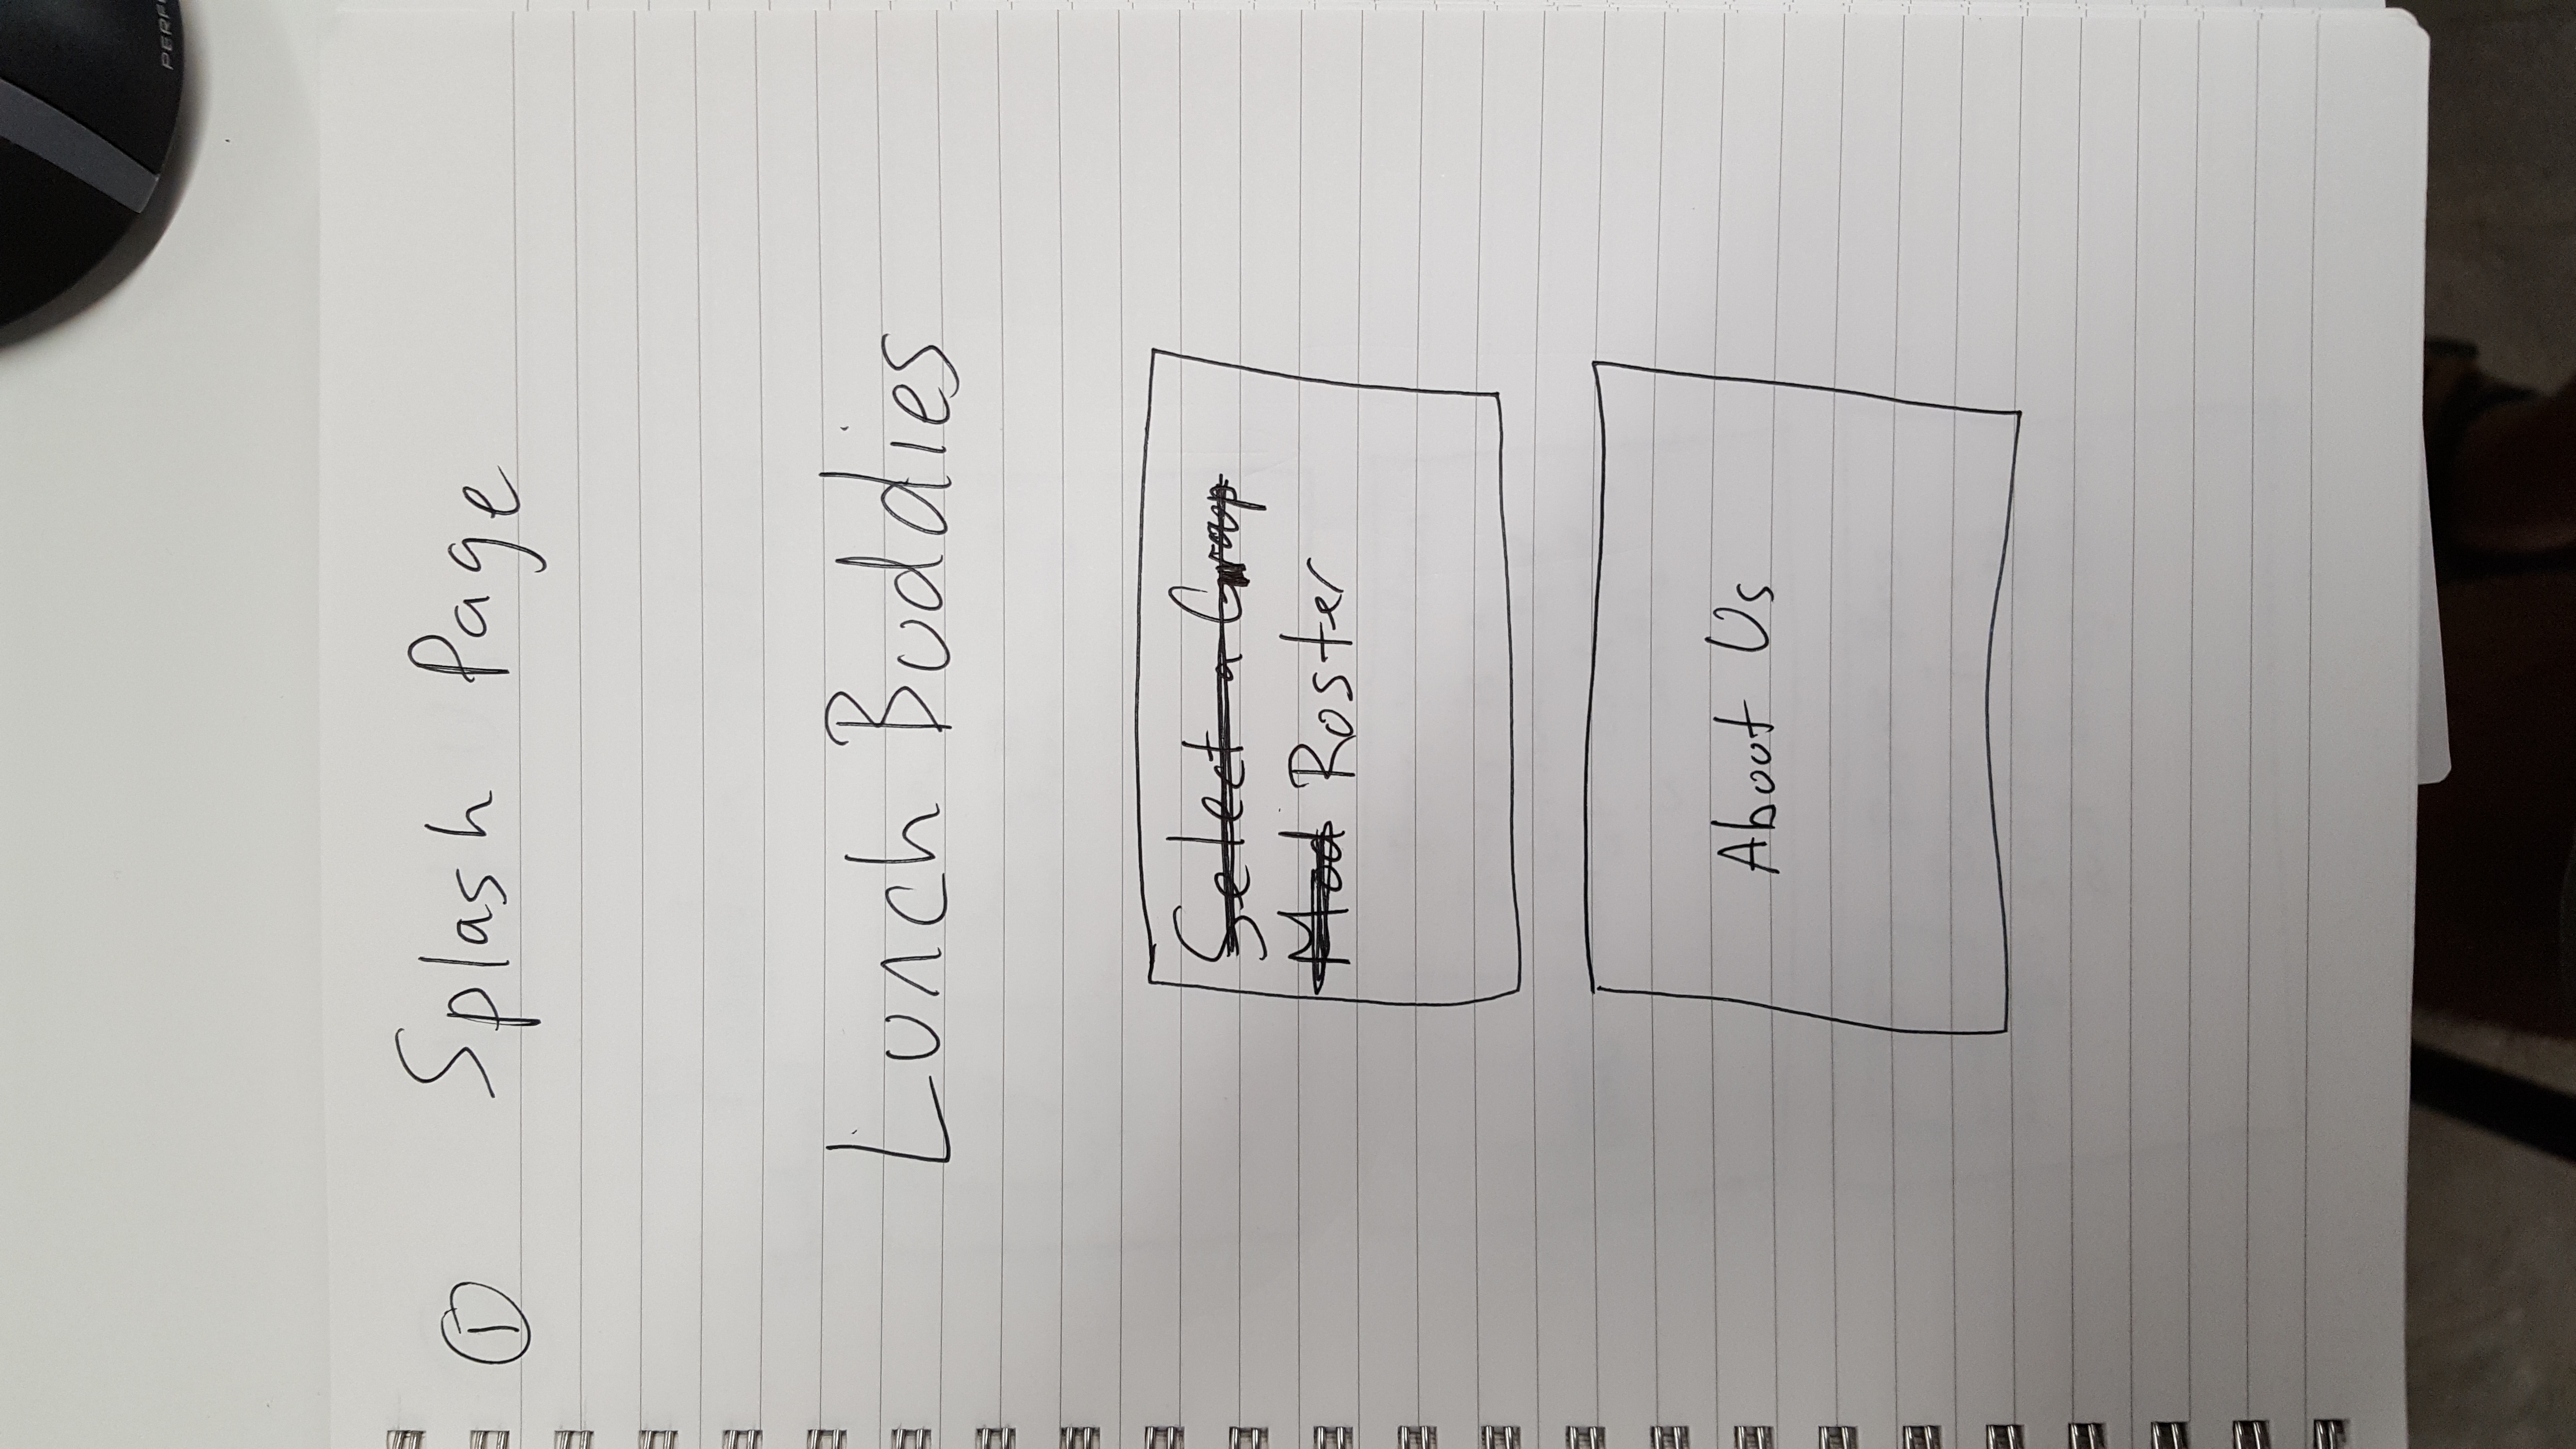 ① Splash Page
Lunch Buddies
Select a Group
Mod Roster
About Us
PERF